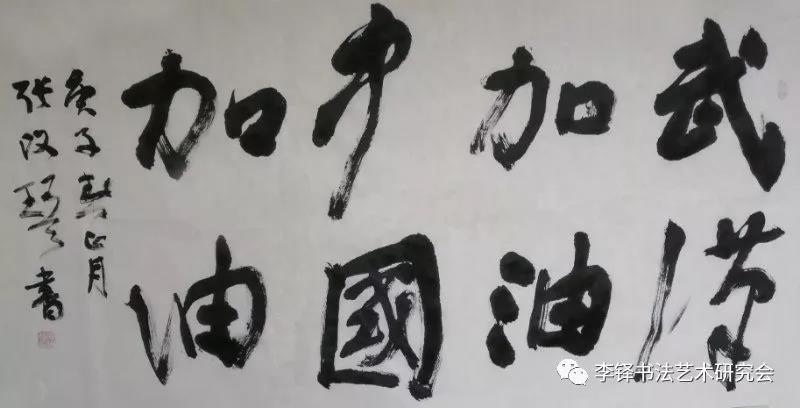 武漢
加油
中國
加油
庚子春正月
张改琴書
李铎书法艺术研究会